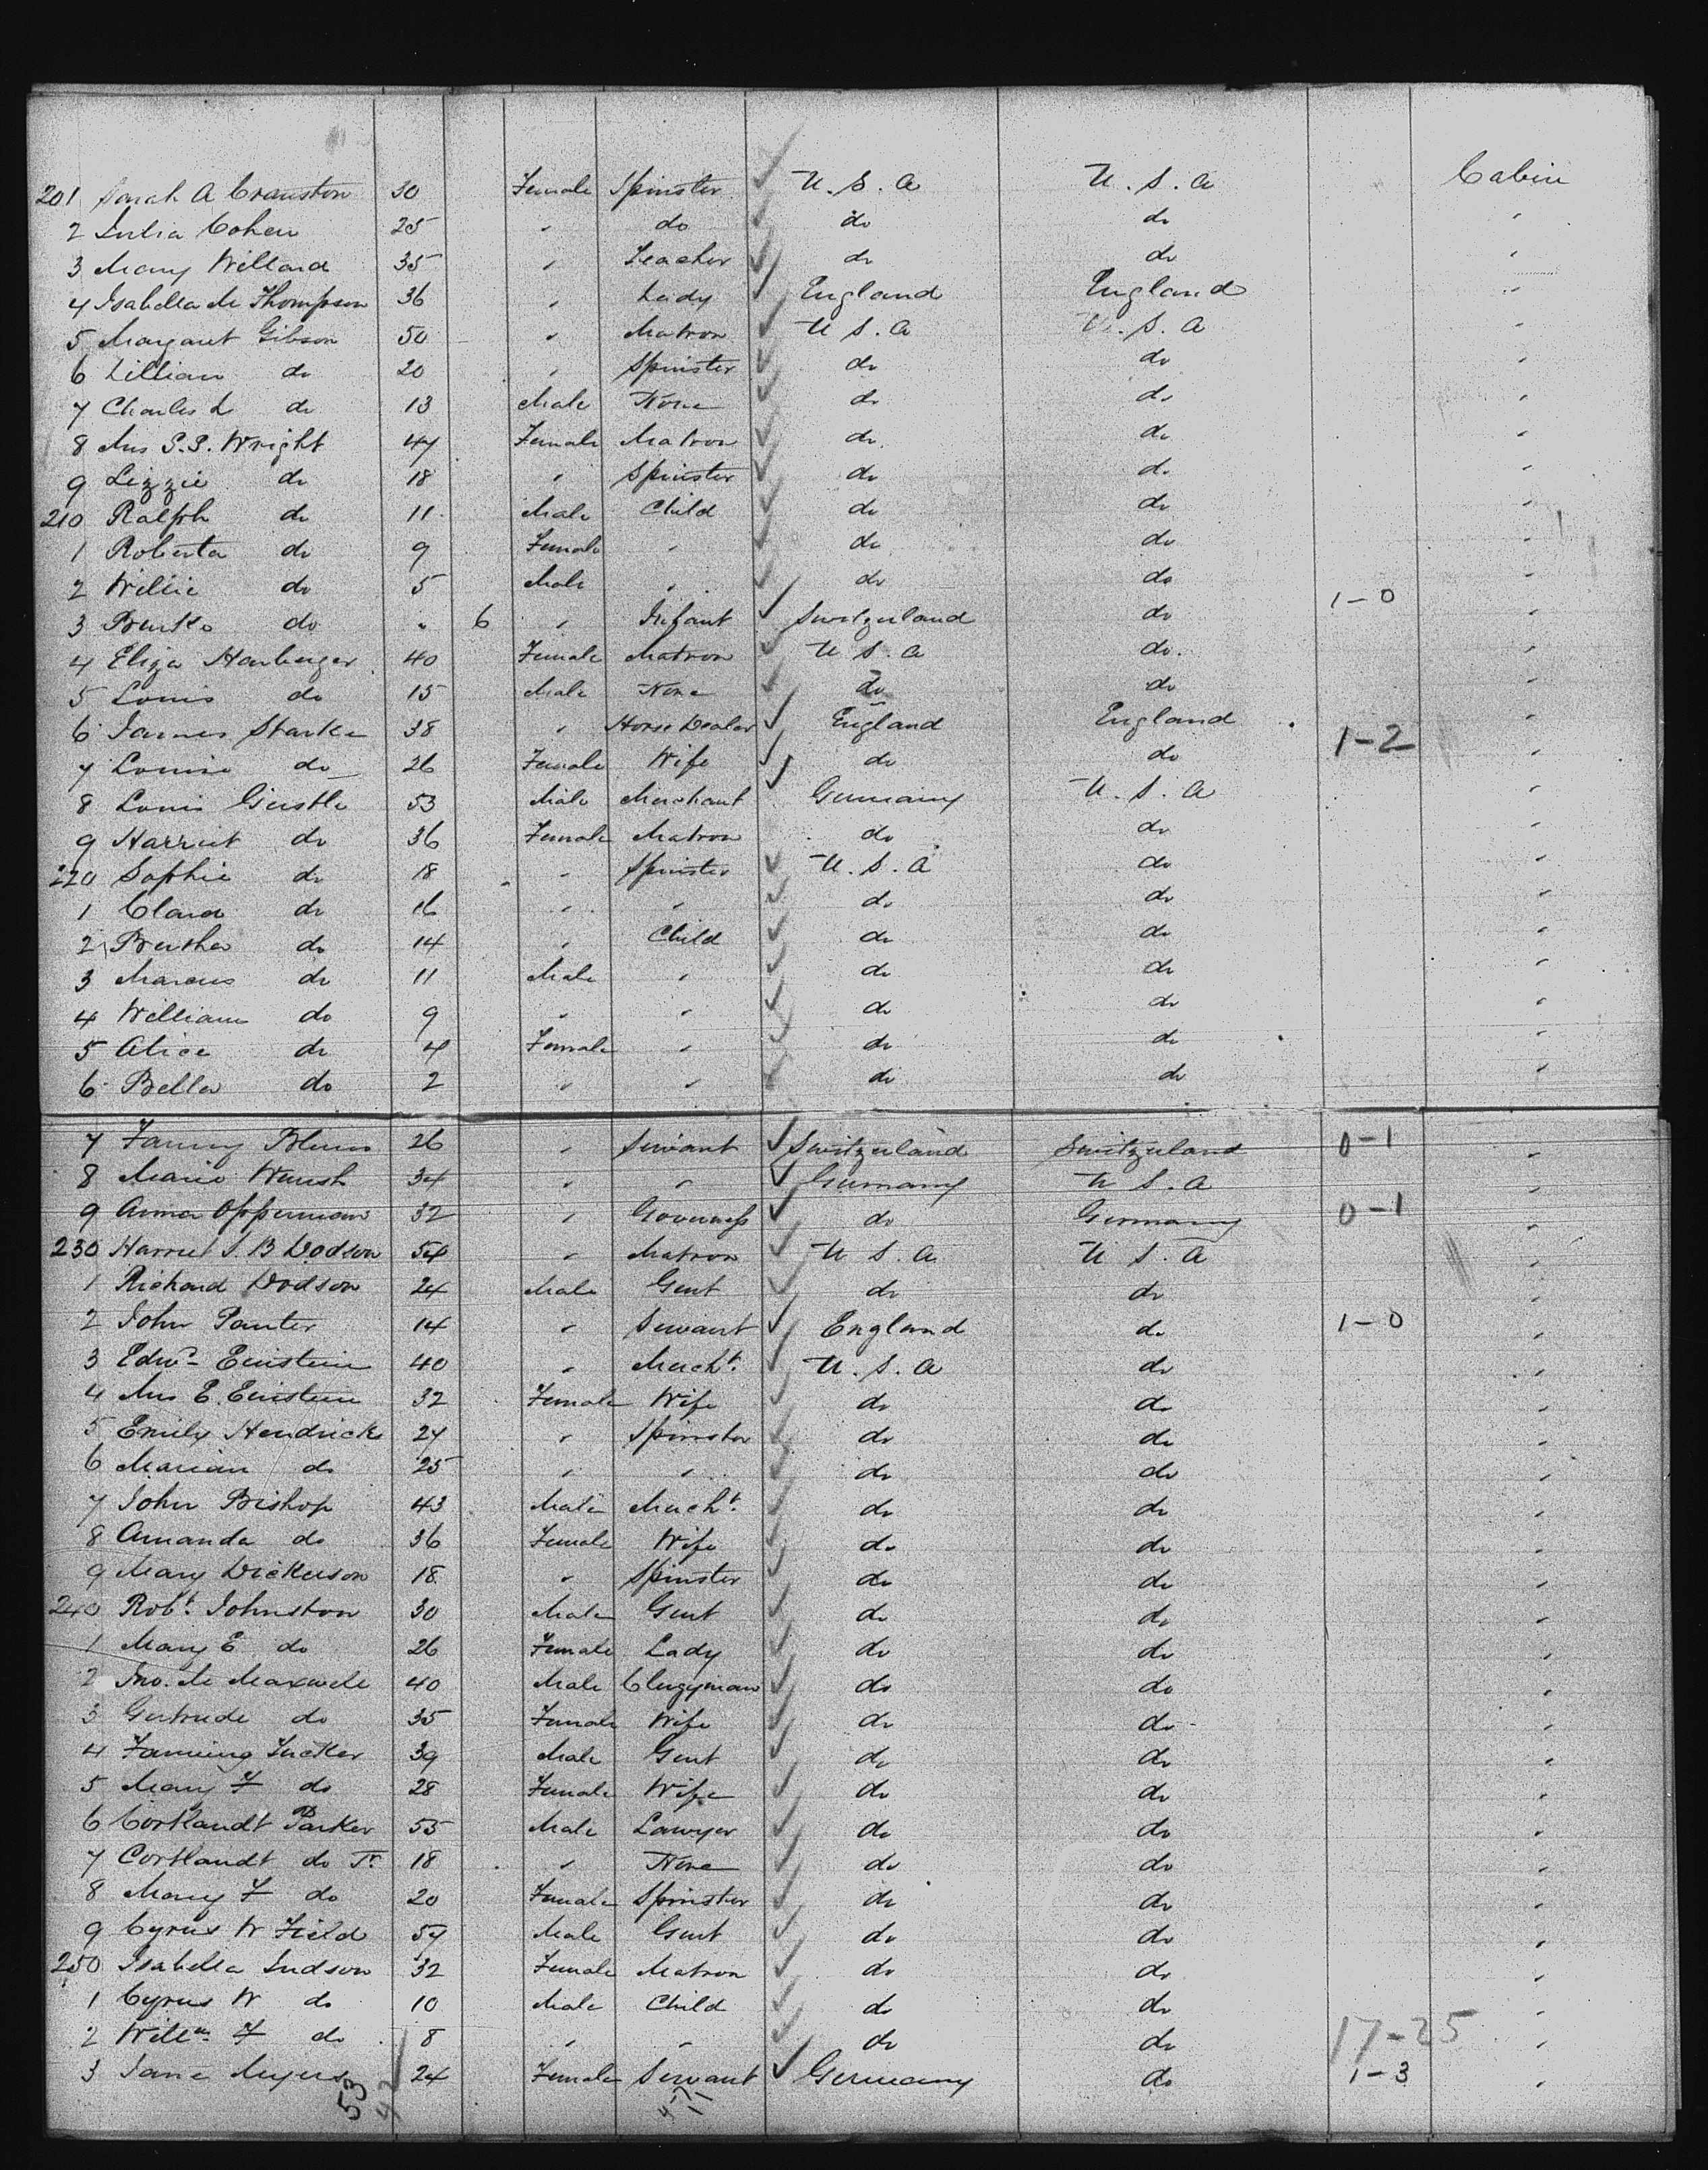 Cabin
201 Sarah A Cranston 30 Female Spinster U.S.A U.S.A
2 Julia Cohen 25 " do do do "
3 Mary Willard 35 " Teacher do do "
4 Isabella M Thompson 36 " Lady England England "
5 Margaret Gibson 50 " Matron U S.A U.S.A "
6 Lillian do 20 " Spinster do do "
7 Charles L do 13 Male None do do "
8 Mrs S.S. Wright 47 Female Matron do do "
9 Lizzie do 18 " Spinster do do "
210 Ralph do 11 Male Child do do "
1 Roberta do 9 Female " do do "
2 Willie do 5 Male " do do "
3 do " 6 " Infant Switzerland do 1-0 "
4 Eliza Harberger 40 Female Matron U S.A do. "
5 Louis do 15 Male None do do "
6 James Starke 38 " Horse Dealer England England "
7 Louise do 26 Female Wife do do 1-2 "
8 Louis Gerstle 53 Male Merchant Germany U.S.A "
9 Harriet do 36 Female Matron do do "
220 Sophie do 18 " Spinster U.S.A do "
1 Clara do 16 " " do do "
2 Bertha do 14 " Child do do "
3 Marcus do 11 Male " do do "
4 William do 9 " " do do "
5 Alice do 4 Female " do do "
6 Bella do 2 " " do do "
7 Fanny Blum 26 " Servant Switzerland Switzerland 0-1 "
8 Marie 34 " " Germany U S.A "
9 Anna Opperman 32 " Governess do Germany 0-1 "
230 Harriet S. B Dodson 54 " Matron U S.A U S.A "
1 Richard Dodson 24 Male Gent do do "
2 John Panter 14 " Servant England do 1-0 "
3 Edwd Einstein 40 " Mercht. U.S.A do "
4 Mrs E. Einstein 32 Female Wife do do "
5 Emily Hendricks 27 " Spinster do do "
6 Marian do 25 " " do do "
7 John Bishop 43 Male Mercht. do do "
8 Amanda do 36 Female Wife do do "
9 Mary Dickerson 18 " Spinster do do "
240 Robt. Johnston 30 Male Gent do do "
1 Mary E do 26 Female Lady do do "
2 Jno. M Maxwell 40 Male Clergyman do do "
3 Gertrude do 35 Female Wife do do "
4 Fanning Tucker 39 Male Gent do do "
5 Mary F do 28 Female Wife do do "
6 Cortlandt Parker 55 Male Lawyer do do "
7 Cortlandt do Jr 18 " None do do "
8 Mary F do 20 Female Spinster do do "
9 Cyrus W Field 59 Male Gent do do "
250 Isabella Judson 32 Female Matron do do "
1 Cyrus W do 10 Male Child do do "
2 Willm F do 8 " " do do 17-25 "
3 Jane Meyers 24 Female Servant Germany do 1-3 "
53